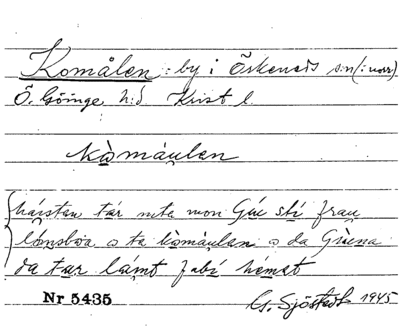 Komålen : by i Örkeneds sn (: norr)
Ö. Göinge h:d Krist l.
kòmáulen
háisten tár nte mon Gúc stí frau
lánsboa o ta kòmáulen o da Gùena
da tær lámt fabí hémat
Nr 5435 G. Sjöstedt 1945